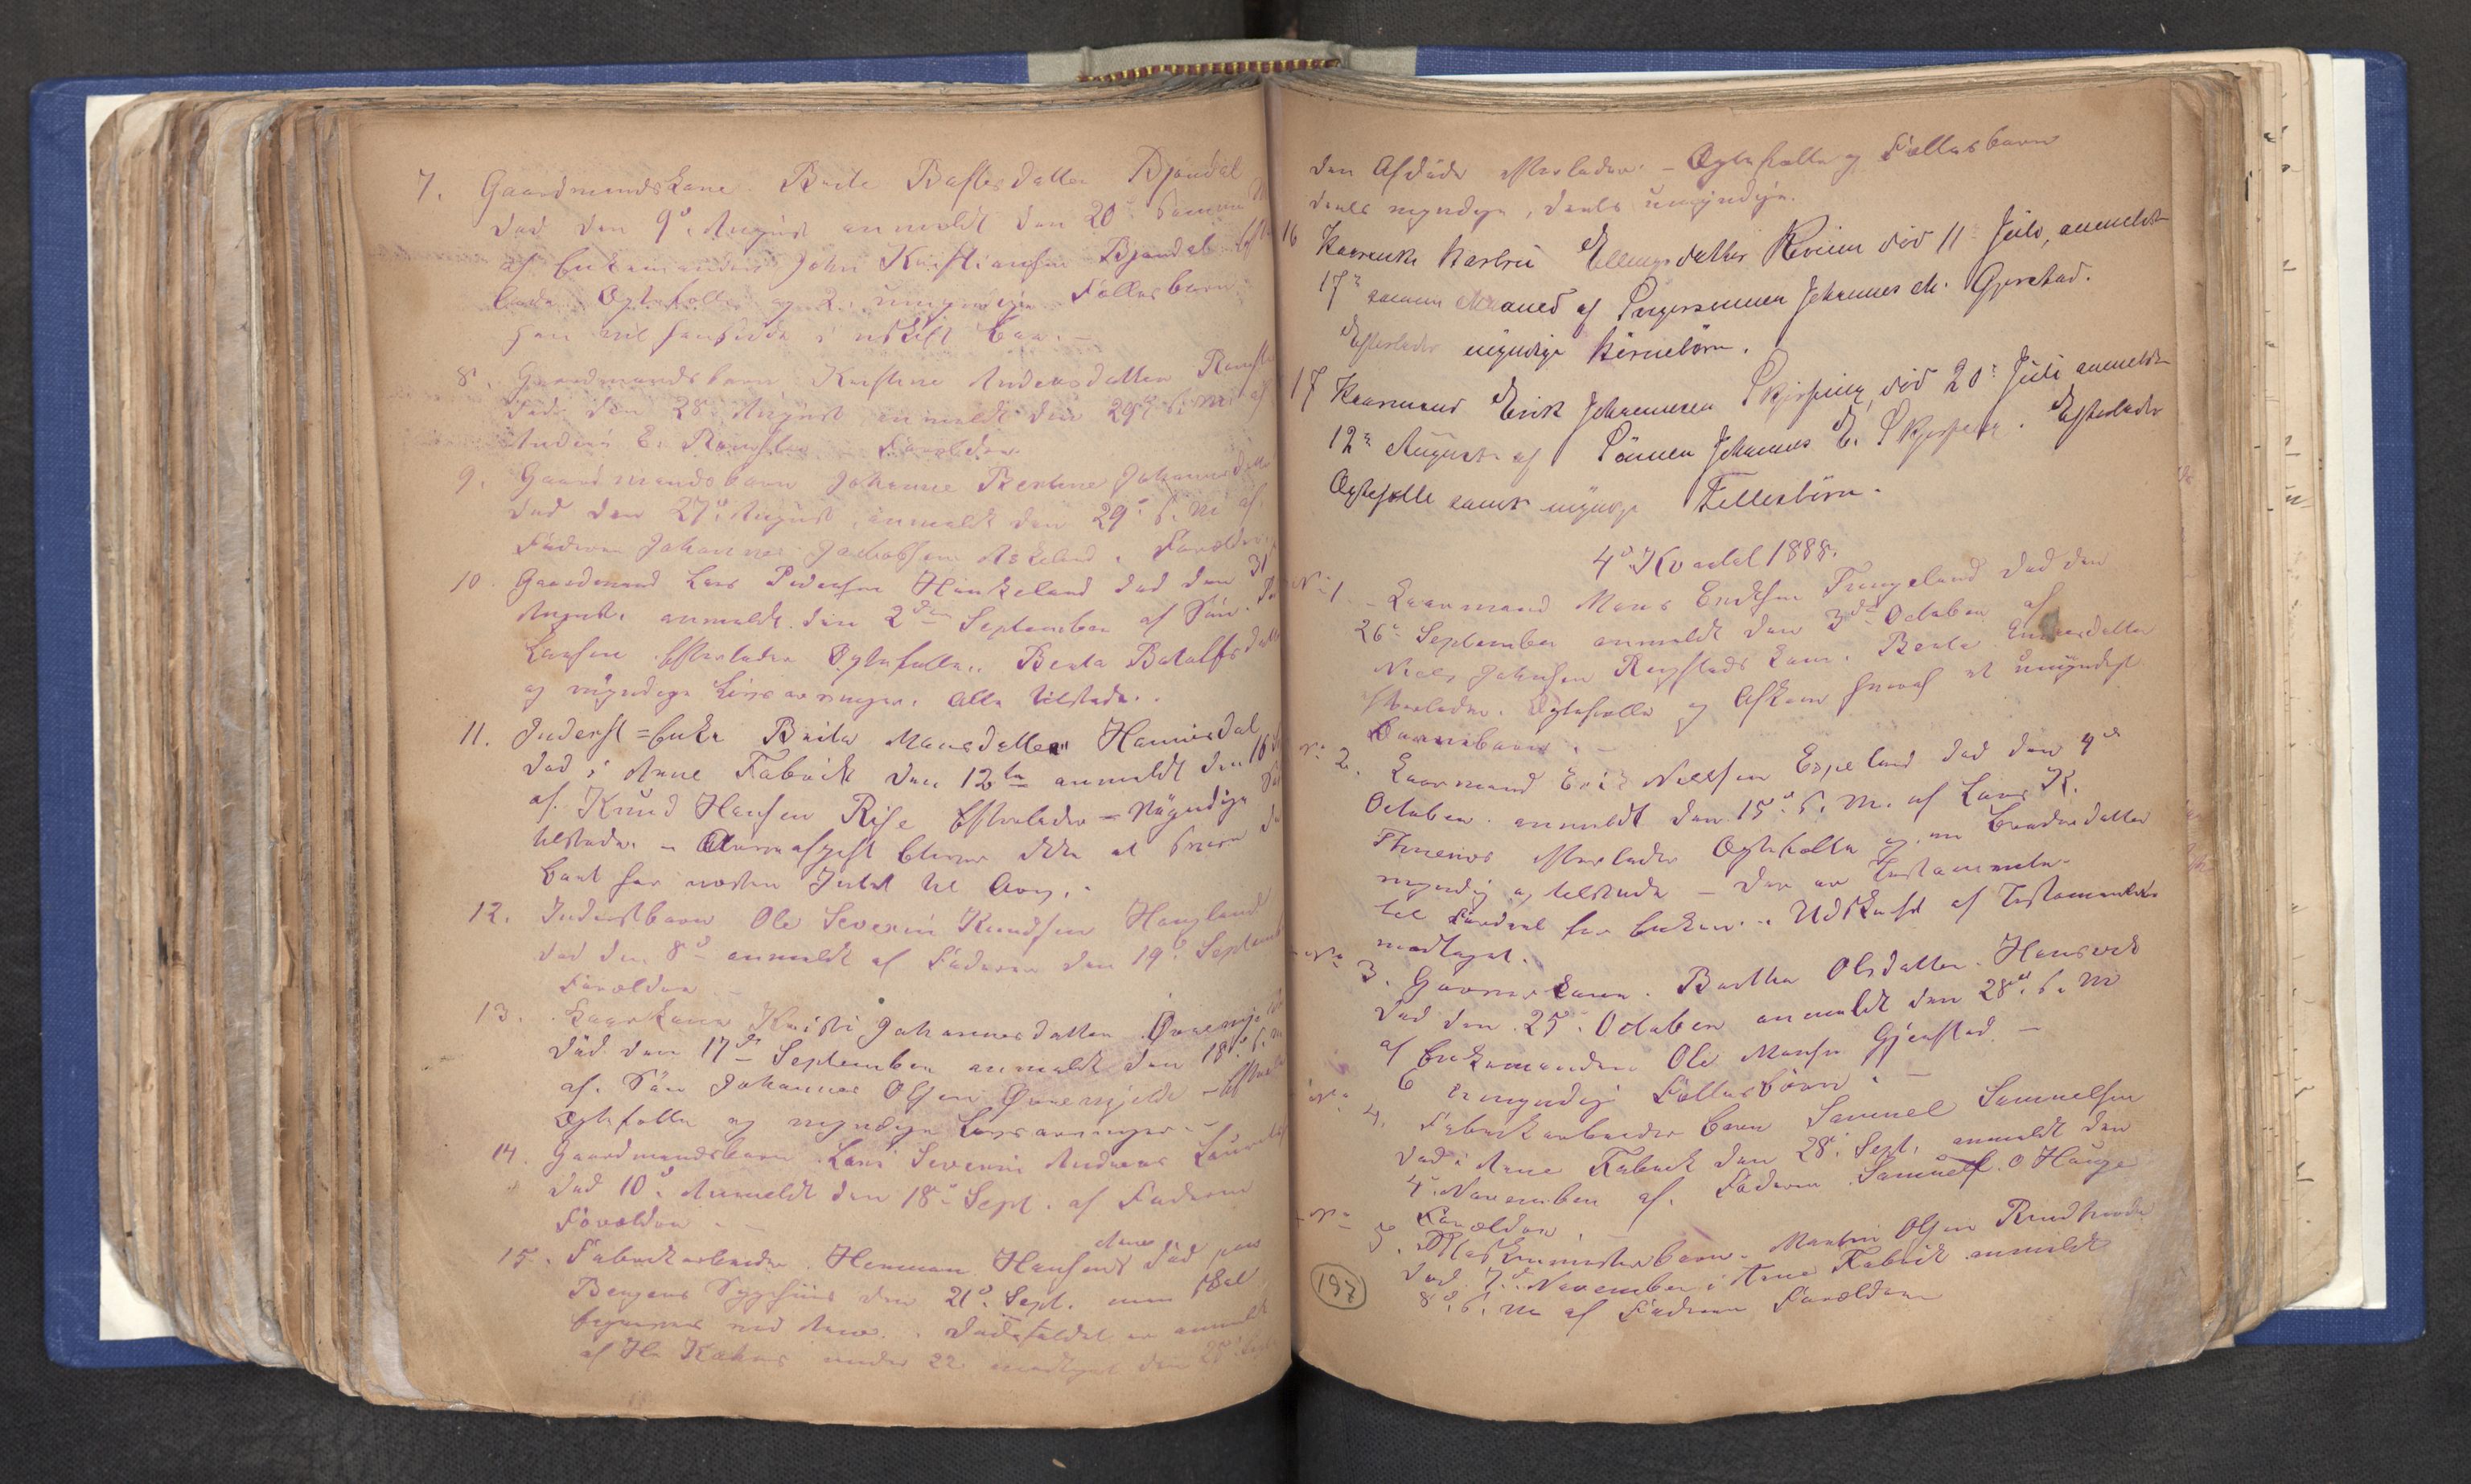 7. Gaardmandskone Brite Baftesdatter Bjøndal
død den 9de August anmeldt den 20de samme
af Enkemanden John Kristiansen Bjøndal
Ægtefelle og 2 umyndige Fællesbarn
han vil hensidde i uskift Boe. –
8. Gaardmandsbarn Kristine Andersdatter
død den 28 August anmeldt den 29de s. m. af
Anders E. Forældre
9. Gaardmandsbarn Johanne Bertine Johannesdatter
død den 27de August, anmeldt den 29de s. M. af
Faderen Johannes Jacobsen Askeland. Forældre
10. Gaardmand Lars Pedersen Haukeland død den 31
August. anmeldt den 2den September af Søn.
Larsen Efterlader Ægtefelle. Berta Botolfsdatter
og myndige Livsarvinger. Alle tilstede.
11. Inderst=Enke Brita Monsdatter Hannisdal
død i Arne Fabrik den 12te anmeldt den 16
af. Knud Hansen Rise Efterlader – Myndige
tilstede. – Arveafgift bliver ikke at svare
Boet har næsten Intet til Eong.
12. Inderstbarn Ole Severin Knudsen Haugland
død den 8de anmeldt af Faderen den 19de September
Forældre –
13. Kaarkone Kristi Johannesdatter Øvremjelde
død den 17de September anmeldt den 18de s. m.
af. Søn Johannes Olsen Øvremjelde –
Ægtefelle og myndige Livsarvinger –
14. Gaardmandsbarn Lars Severin Andreas
død 10de Anmeldt den 18de Sept. af Faderen
Forældre. –
15. Fabrikarbeider Herman Hansen Arne død paa
Bergens Sygehuus den 21de Sept. men skal
begraves ved Arne. Dødsfaldet er anmeldt
af Hr under 22 modtaget den 25 Sept
den Afdøde efterlader. – Ægtefælle og Fællesbarn
deels myndige, deels umyndige.
16 Kaarenke Karbrü Ellingsdatter Revim død 11te Juli, anmeldt
17de samme Maaned af Svigersønnen Johannes M. Gjerstad.
Efterlader myndige Børnebørn.
17 Kaarmand Erik Johannesen Skjerping, død 20de Juli anmeldt
12te August af Sønnen Johannes E. Skjerping. Efterlader
Ægtefælle samt myndige Fellesbørn.
4de Kvartal 1888.
No 1 – Kaarmand Mons Eriksen Tungeland død den
26de September anmeldt den 3de October af
Niels Johnsen Røgstads kone. Berta datter
efterlader. Ægtefælle og Afkom hvoraf et umyndigt
Barnebarn. –
No 2. Kaarmand Erik Nielsen Espeland død den 4de
October. anmeldt den 15de s. M. af Lars K.
Thunes efterlader Ægtefælle og en Broderdatter
myndig og tilstede – der er Testamente
til Fordeel for Enken. Udskrift af Testamentet
modtaget.
No 3. Gaardmdskone. Barthe Olsdatter Hansvik
død den 25. October anmeldt den 28de s. M
af Enkemanden Ole Monsen Gjerstad –
6 umyndige Fællesbørn. –
No 4. Fabrikarbeider barn Samuel Samuelsen
død i Arne Fabrik den 28de Sept. anmeldt den
4de November af. Faderen Samuel O Hauge
Forældre
No 5. Maskinmesterbarn. Martin Olsen Rundhovde
død 7de November i Arne Fabrik anmeldt
8de s. M af Faderen Forældre
197